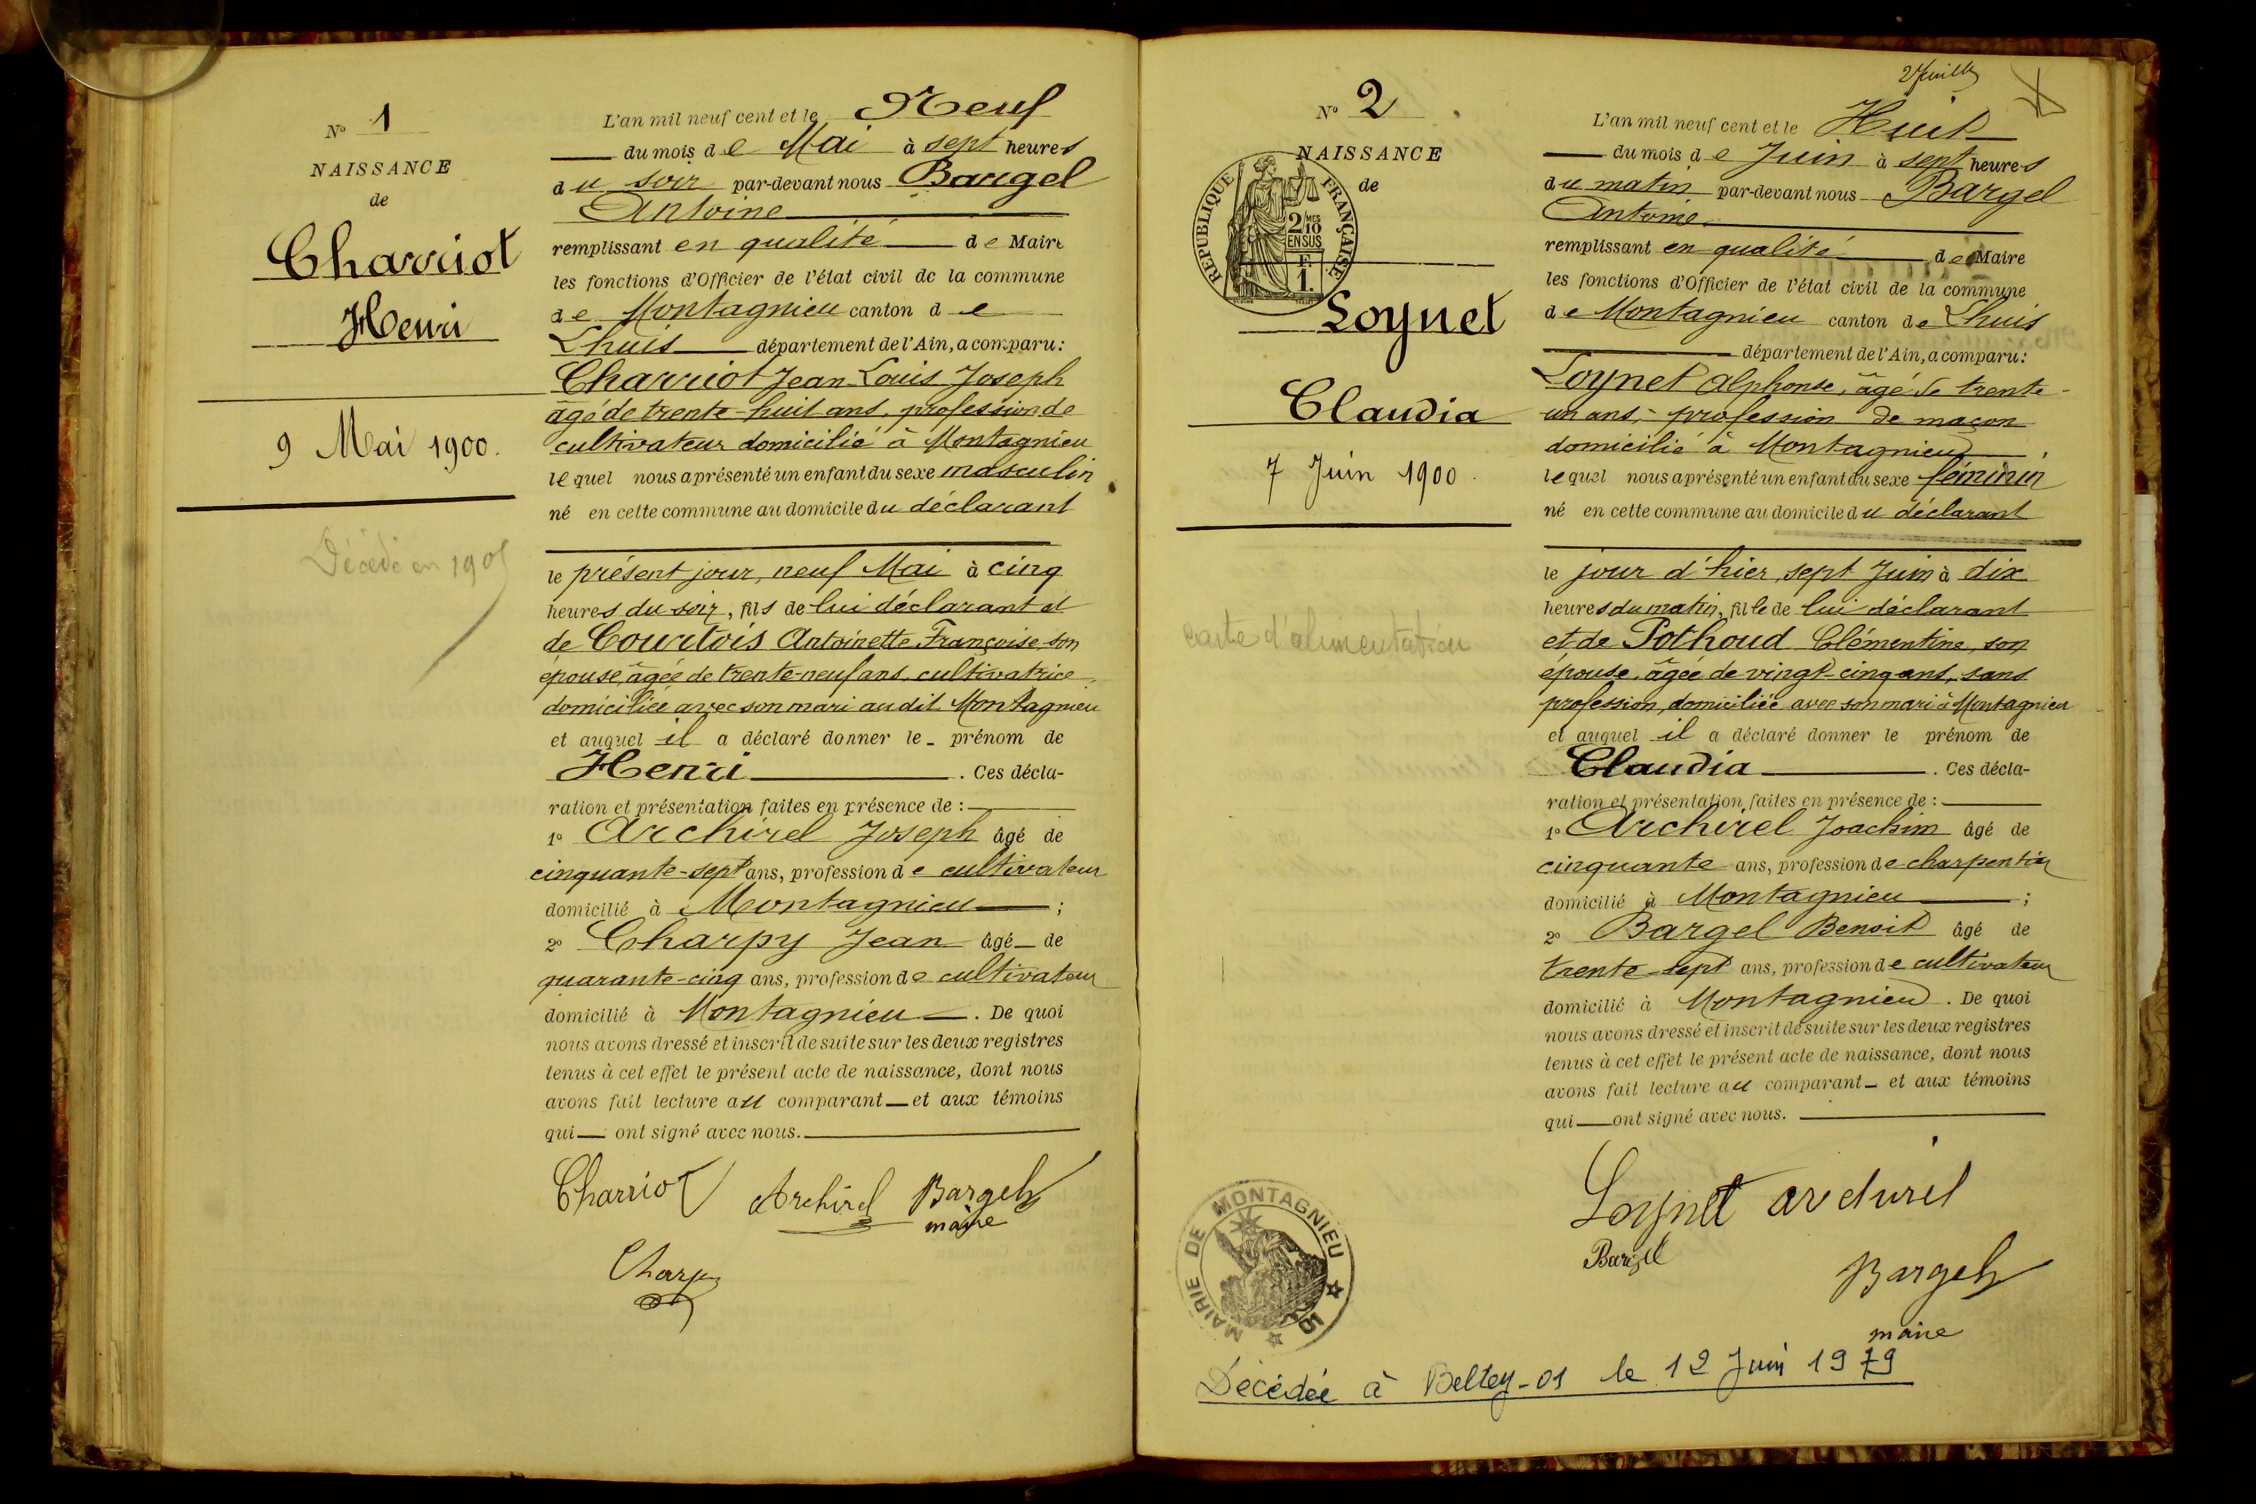 Nº 1
NAISSANCE
de
Charriot
Henri
9 Mai 1900.
Décédé en 190
L'an mil neuf cent et le Neuf
du mois de Mai à sept heures
du soir par-devant nous Bargel
Antoine
remplissant en qualité de Maire
les fonctions d'Officier de l'état civil de la commune
de Montagnieu canton de
Lhuis département de l'Ain, a comparu:
Charriot Jean Louis Joseph
âgé de trente-huit ans, profession de
cultivateur domicilié à Montagnieu
lequel nous a présenté un enfant du sexe masculin
né en cette commune au domicile du déclarant
le présent jour, neuf Mai à cinq
heures du soir, fils de lui déclarant et
de Courtois Antoinette Françoise son
épouse, âgée de trente-neuf ans, cultivatrice,
domiciliée avec son mari au dit Montagnieu
et auquel il a déclaré donner le prénom de
Henri . Ces décla-
ration et présentation faites en présence de :
1º Archirel Joseph âgé de
cinquante-sept ans, profession de cultivateur
domicilié à Montagnieu ;
2º Charpy Jean âgé de
quarante-cinq ans, profession de cultivateur
domicilié à Montagnieu . De quoi
nous avons dressé et inscrit de suite sur les deux registres
tenus à cet effet le présent acte de naissance, dont nous
avons fait lecture au comparant et aux témoins
qui ont signé avec nous.
Charriot Archirel Bargel
maire
Charpy
2 Juillet
Nº 2
NAISSANCE
de
RÉPUBLIQUE FRANÇAISE
2/10 MES
EN SUS
F.
1.
Loynet
Claudia
7 Juin 1900.
carte d'alimentation
L'an mil neuf cent et le Huit
du mois de Juin à sept heures
du matin par-devant nous Bargel
Antoine
remplissant en qualité de Maire
les fonctions d'Officier de l'état civil de la commune
de Montagnieu canton de Lhuis
département de l'Ain, a comparu:
Loynet Alphonse, âgé de trente-
un ans, profession de maçon
domicilié à Montagnieu
lequel nous a présenté un enfant du sexe féminin
né en cette commune au domicile du déclarant
le jour d'hier, sept Juin à dix
heures du matin, fille de lui déclarant
et de Pothoud Clémentine, son
épouse, âgée de vingt-cinq ans, sans
profession, domiciliée avec son mari à Montagnieu
et auquel il a déclaré donner le prénom de
Claudia . Ces décla-
ration et présentation faites en présence de :
1º Archirel Joachim âgé de
cinquante ans, profession de charpentier
domicilié à Montagnieu ;
2º Bargel Benoit âgé de
trente-sept ans, profession de cultivateur
domicilié à Montagnieu . De quoi
nous avons dressé et inscrit de suite sur les deux registres
tenus à cet effet le présent acte de naissance, dont nous
avons fait lecture au comparant et aux témoins
qui ont signé avec nous.
Loynet archirel
Bargel
Bargel
maire
MAIRIE DE MONTAGNIEU
Décédée à Belley-01 le 12 Juin 1979